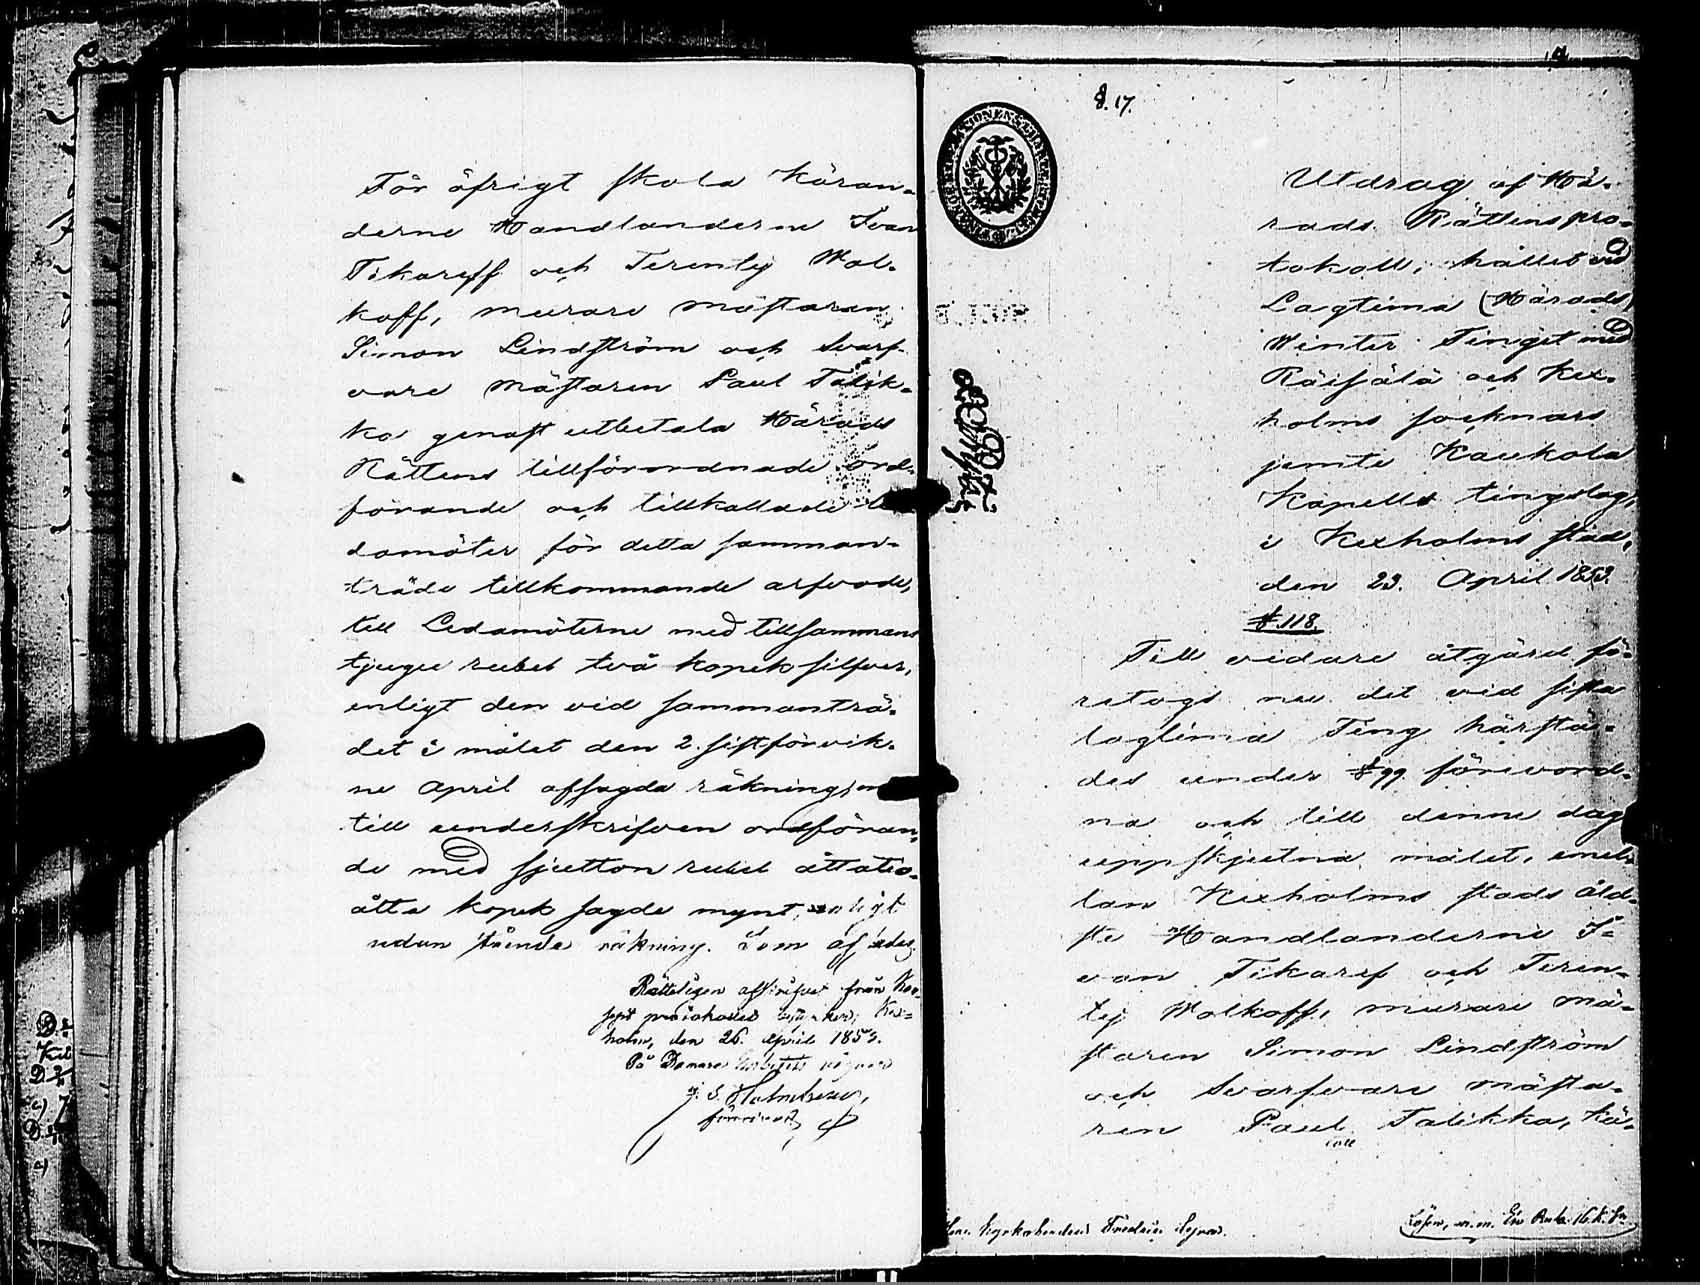 För öfrigt skola Käran-
derne Handlanderne Ivan
Tikareff och Terentej Wol-
koff, murare mästaren
Simon Lindström och Svarf-
vare mästaren Paul Talik-
ka genast utbetala Härads
Rättens tillförordnade ord-
förande och tillkallade Le
damöter för detta samman-
träde tillkommande arfvode,
till Ledamöterne med tillsammans
tjugu rubel två kopek silfver,
enligt den vid sammanträ-
det i målet den 2. sistförvik-
ne April afsagda räkning,
till underskrifven ordföran-
de med sjutton rubel åttatio-
åtta kopek sagde mynt, enligt
nedan stående räkning. Som afsades,
Rätteligen afskrifvet från
protokollet Kex-
holm, den 26. April 1853.
På Domare Embetets vägnar
J. E.
förordnad
8. 17.
Utdrag af Hä-
rads Rättens pro-
tokoll, hållet vid
Lagtima (Härads)
Winter Tinget med
Räisälä och Kex-
holms socknars
jemte Kaukola
Kapells tingslag,
i Kexholms stad,
den 23. April 1853.
§. 118.
Till vidare åtgärd fö-
retogs nu det vid sista
lagtima Ting härstä-
des under § 99 förevord-
na och till denne dag
uppskjutna målet, emel-
lan Kexholms stads äld-
ste Handlanderne I-
van Tikaref och Teren-
tej Wolkoff, murare mä-
staren Simon Lindström
och Svarfvare mästa-
ren Paul Talikka, Kä-
coll
Lösen, m.m. En Rub. 16 k. Sr